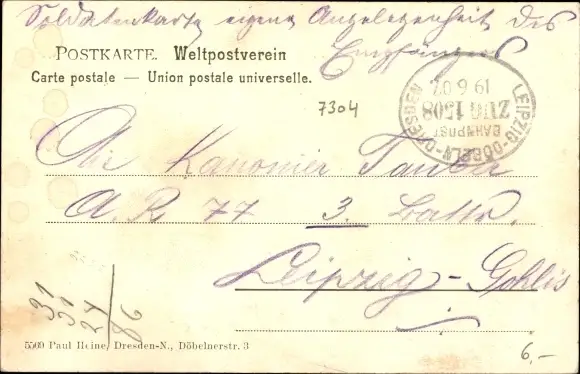 Soldatenkarte eigene Angelegenheit des
Empfängers
POSTKARTE. Weltpostverein
Carte postale — Union postale universelle.
7304
LEIPZIG-DÖBELN-DRESDEN
BAHNPOST
ZUG 1508
19 6 02
An Kanonier Tauber
A. R. 77 3. Battr.
Leipzig-Gohlis
31
31
24
86
5509 Paul Heine, Dresden-N., Döbelnerstr. 3
6.–